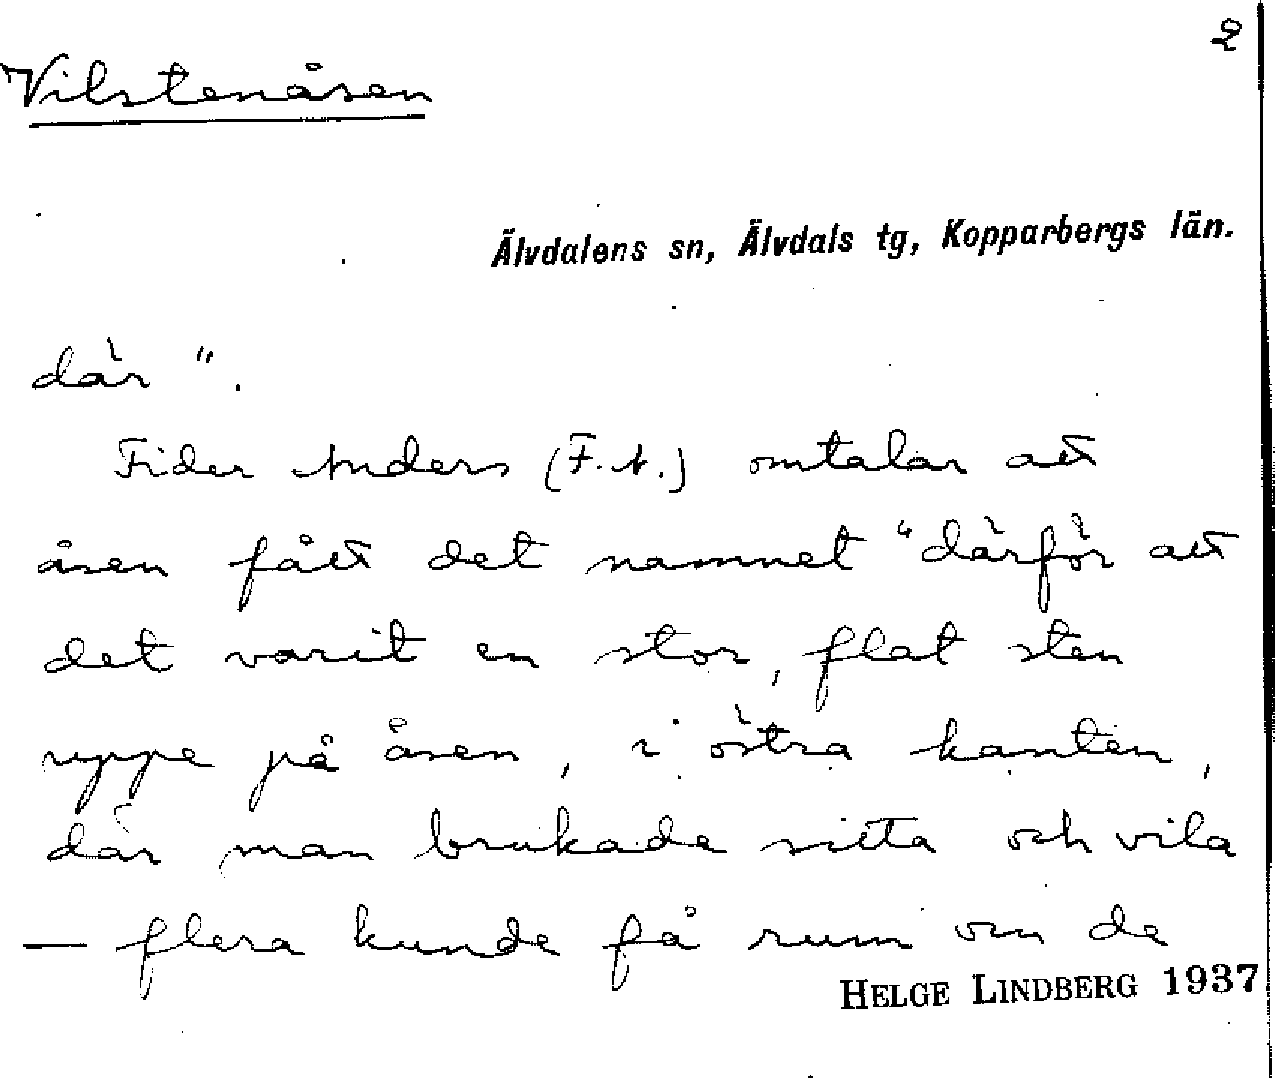 2
Vilstenåsen
Älvdalens sn, Älvdals tg, Kopparbergs län.
där".
Frider Anders (F.A.) omtalar att
åsen fått det namnet "därför att
det varit en stor, flat sten
uppe på åsen, i östra kanten,
där man brukade sitta och vila
— flera kunde få rum om de
HELGE LINDBERG 1937